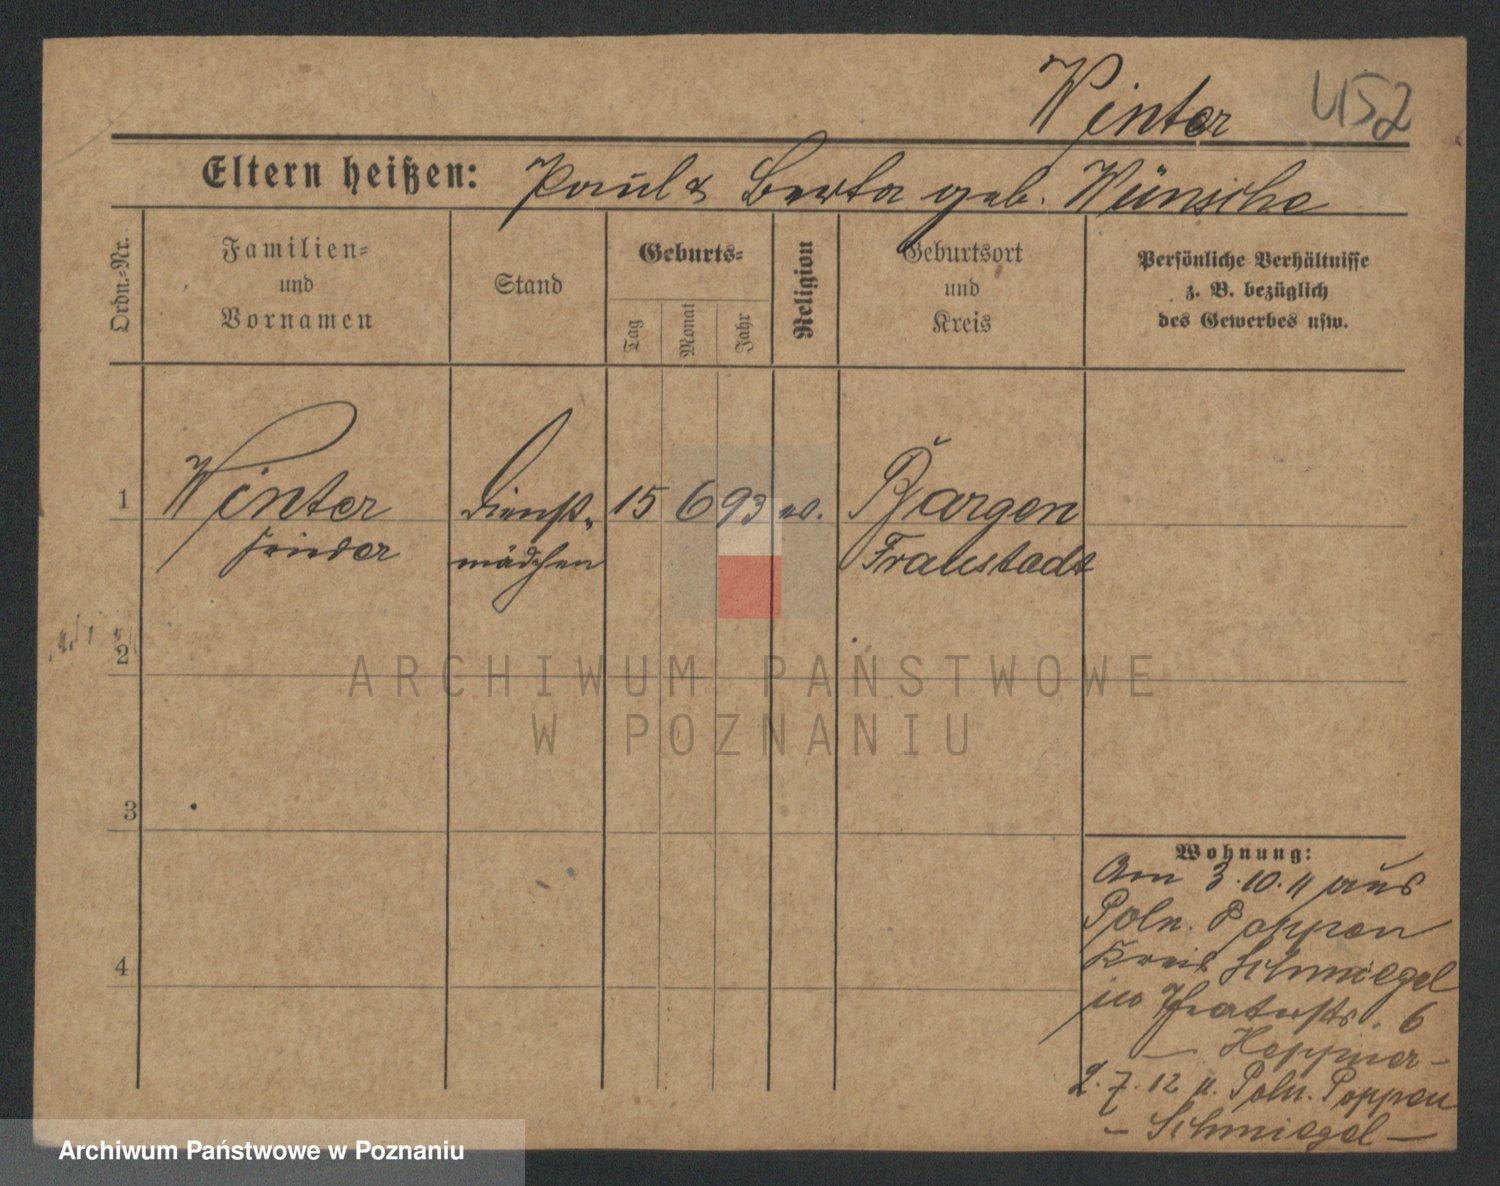 Winter U52
Eltern heißen: Paul & Berta geb. Wünsche
Ordn.-Nr.
Familien-
und
Vornamen
Stand
Geburts-
Tag
Monat
Jahr
Religion
Geburtsort
und
Kreis
Persönliche Verhältnisse
z. B. bezüglich
des Gewerbes usw.
1 Winter Dienst- 15 6 93 ev. Bargen
mädchen Fraustadt
2
3
4
Wohnung:
Am 3.10.11 aus
Poln. Poppen
Kreis Schmiegel
in Theaterstr. 6
— Heppner —
2.7.12 n. Poln. Poppen
— Schmiegel —
ARCHIWUM PAŃSTWOWE
W POZNANIU
Archiwum Państwowe w Poznaniu